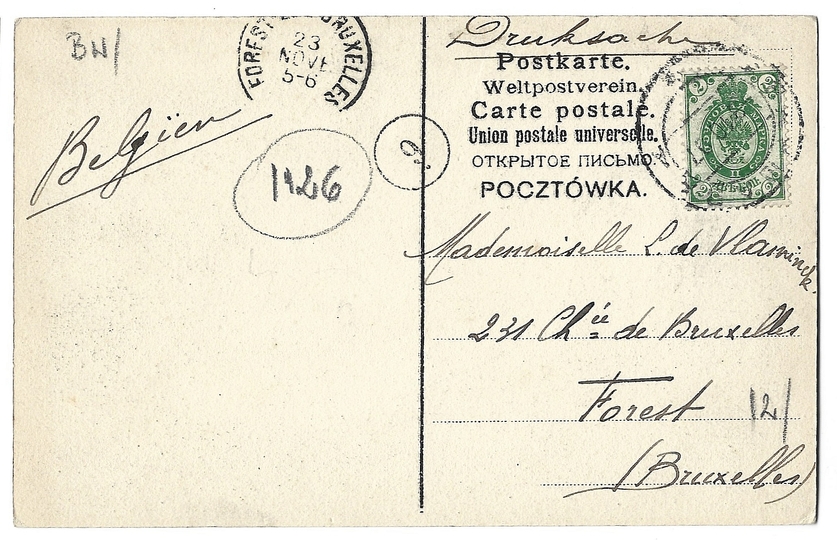 BH/
FOREST BRUXELLES
23
NOVE
5-6
Druksache
Postkarte.
Weltpostverein.
Carte postale.
Union postale universelle.
ОТКРЫТОЕ ПИСЬМО.
POCZTÓWKA.
2 2
2 2
Belgïen
1126
6
Mademoiselle L. de Vlaminck.
231 Chée de Bruxelles
Forest
12/
(Bruxelles)